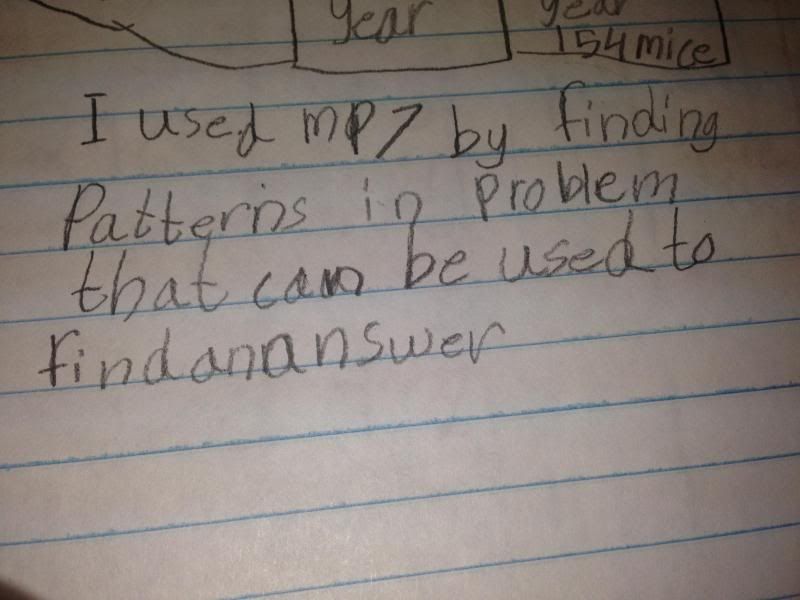 year year
154 mice
I used MP7 by finding
Patterns in problem
that can be used to
find an answer